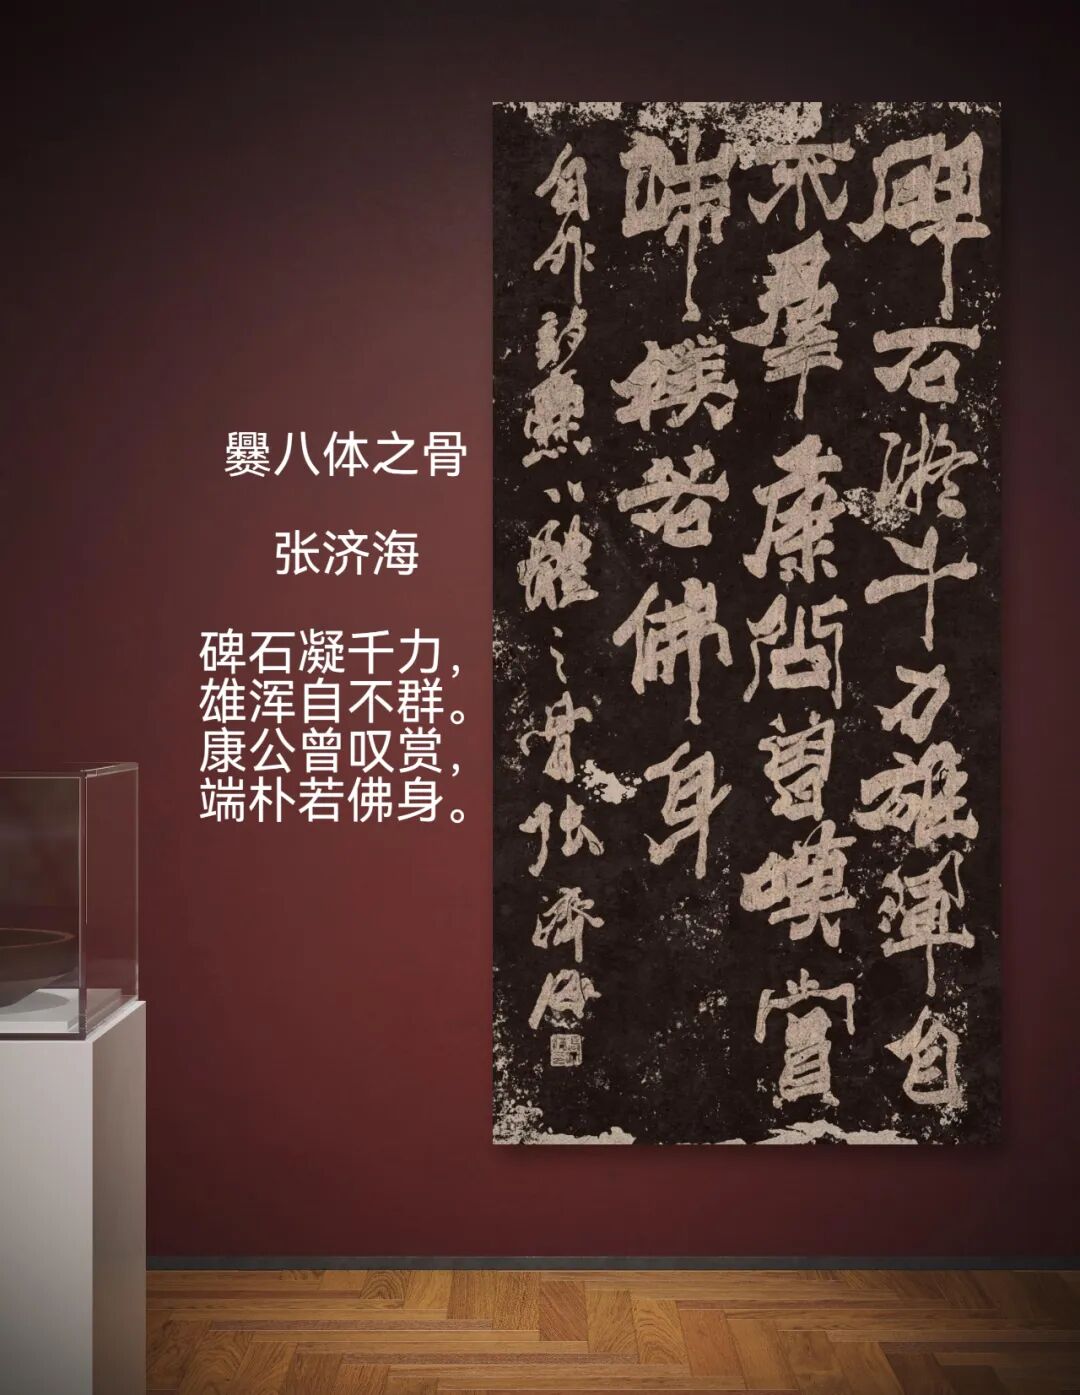 爨八体之骨
张济海
碑石凝千力，
雄浑自不群。
康公曾叹赏，
端朴若佛身。
碑石凝千力雄渾自
不羣康公曾嘆賞
端樸若佛身
自作詩爨八體之骨张濟海